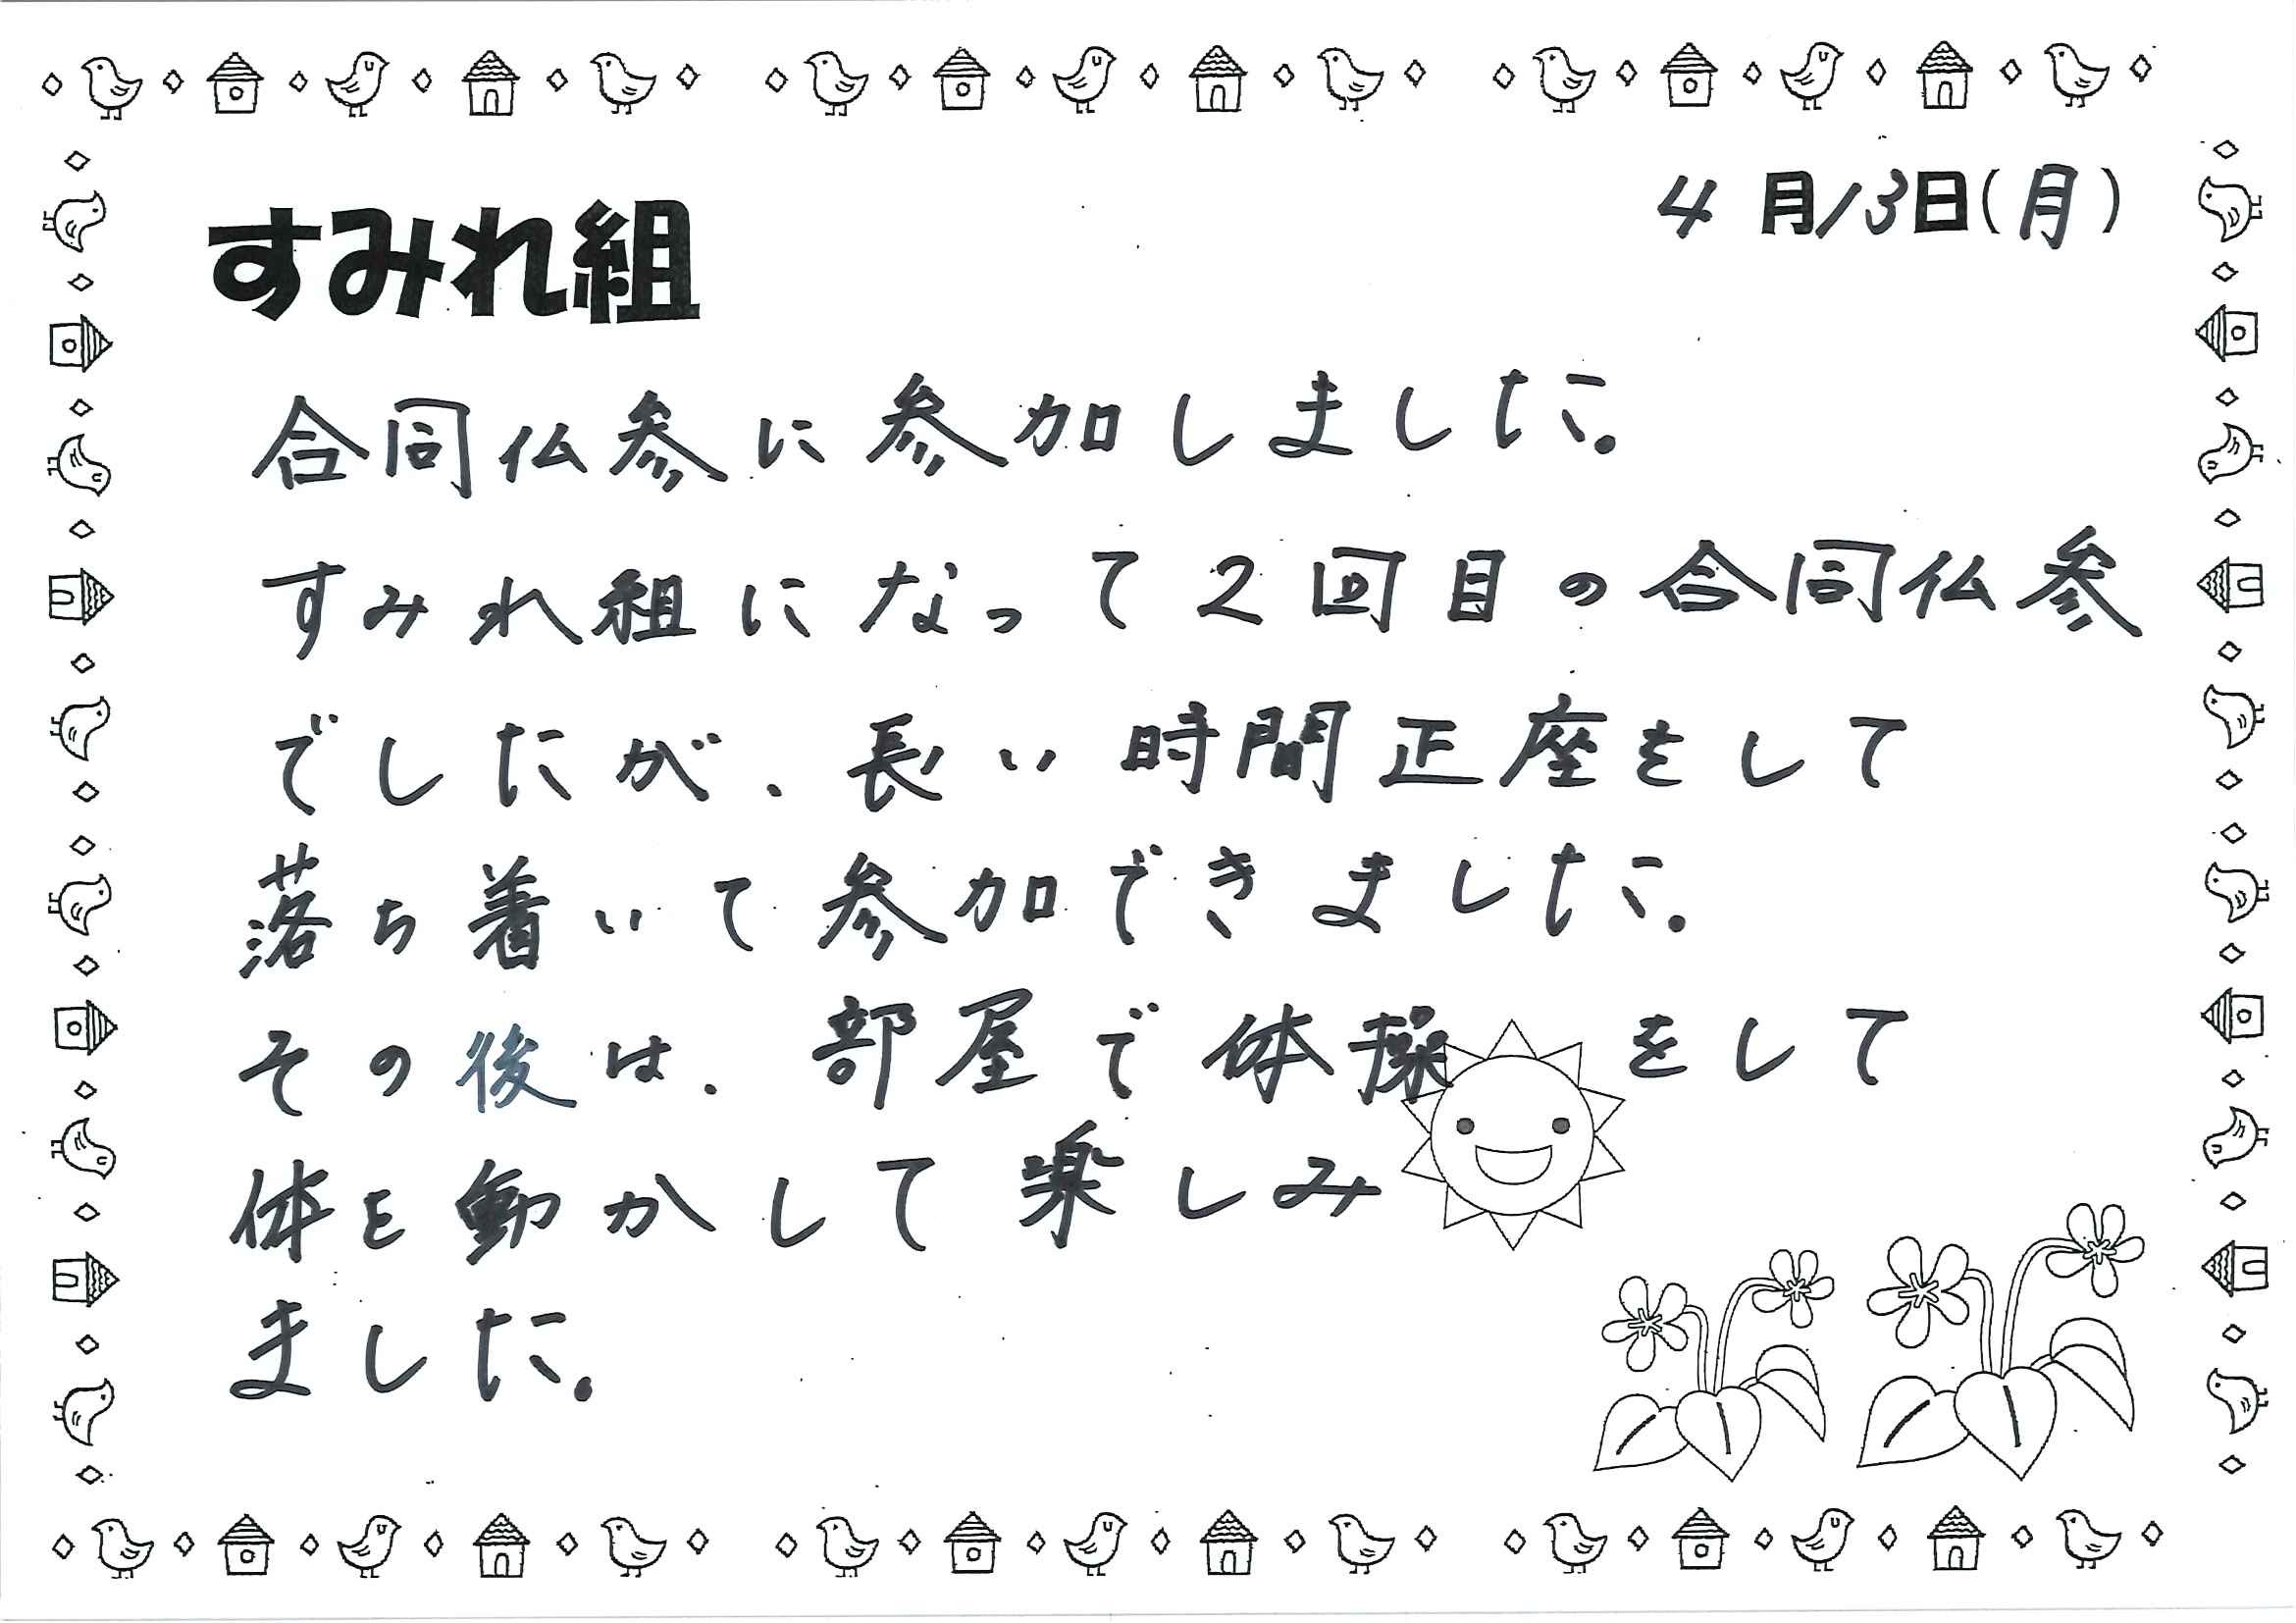 4月13日(月)
すみれ組
合同仏参に参加しました。
すみれ組になって2回目の合同仏参
でしたが、長い時間正座をして
落ち着いて参加できました。
その後は、部屋で体操をして
体を動かして楽しみ
ました。